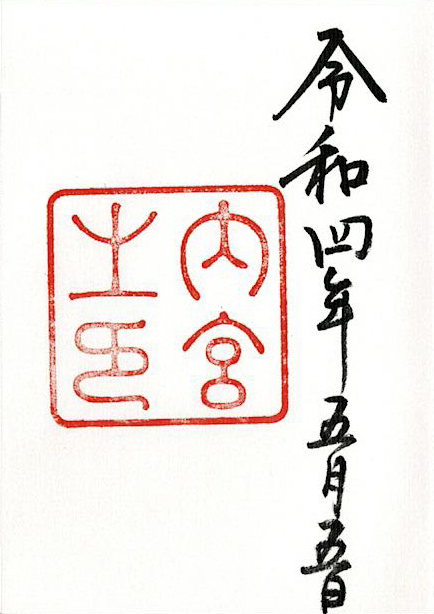 令和四年五月五日
内宮
之印